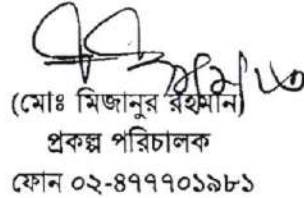 (মোঃ মিজানুর রহমান)
প্রকল্প পরিচালক
ফোন ০২-৪৭৭৭০১৯৮১